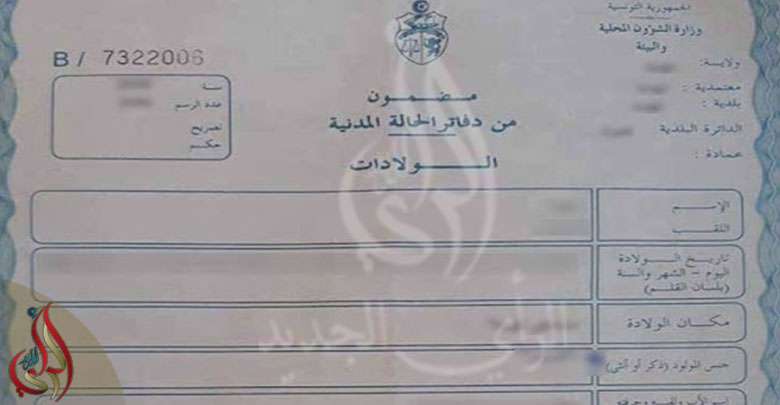 الجمهورية التونسية
وزارة الشؤون المحلية
والبيئة
ولاية:
معتمدية :
بلدية :
الدائرة البلدية
عمادة :
B / 7322006
سنة
عدد الرسم
تصريح
حكم
مضمون
من دفاتر الحالة المدنية
الولادات
الإسم
اللقب
تاريخ الولادة
اليوم - الشهر والسنة
(بلسان القلم)
مكان الولادة
جنس المولود (ذكر أو أنثى)
إسم الأب ولقبه وحرفته
الرأي الجديد